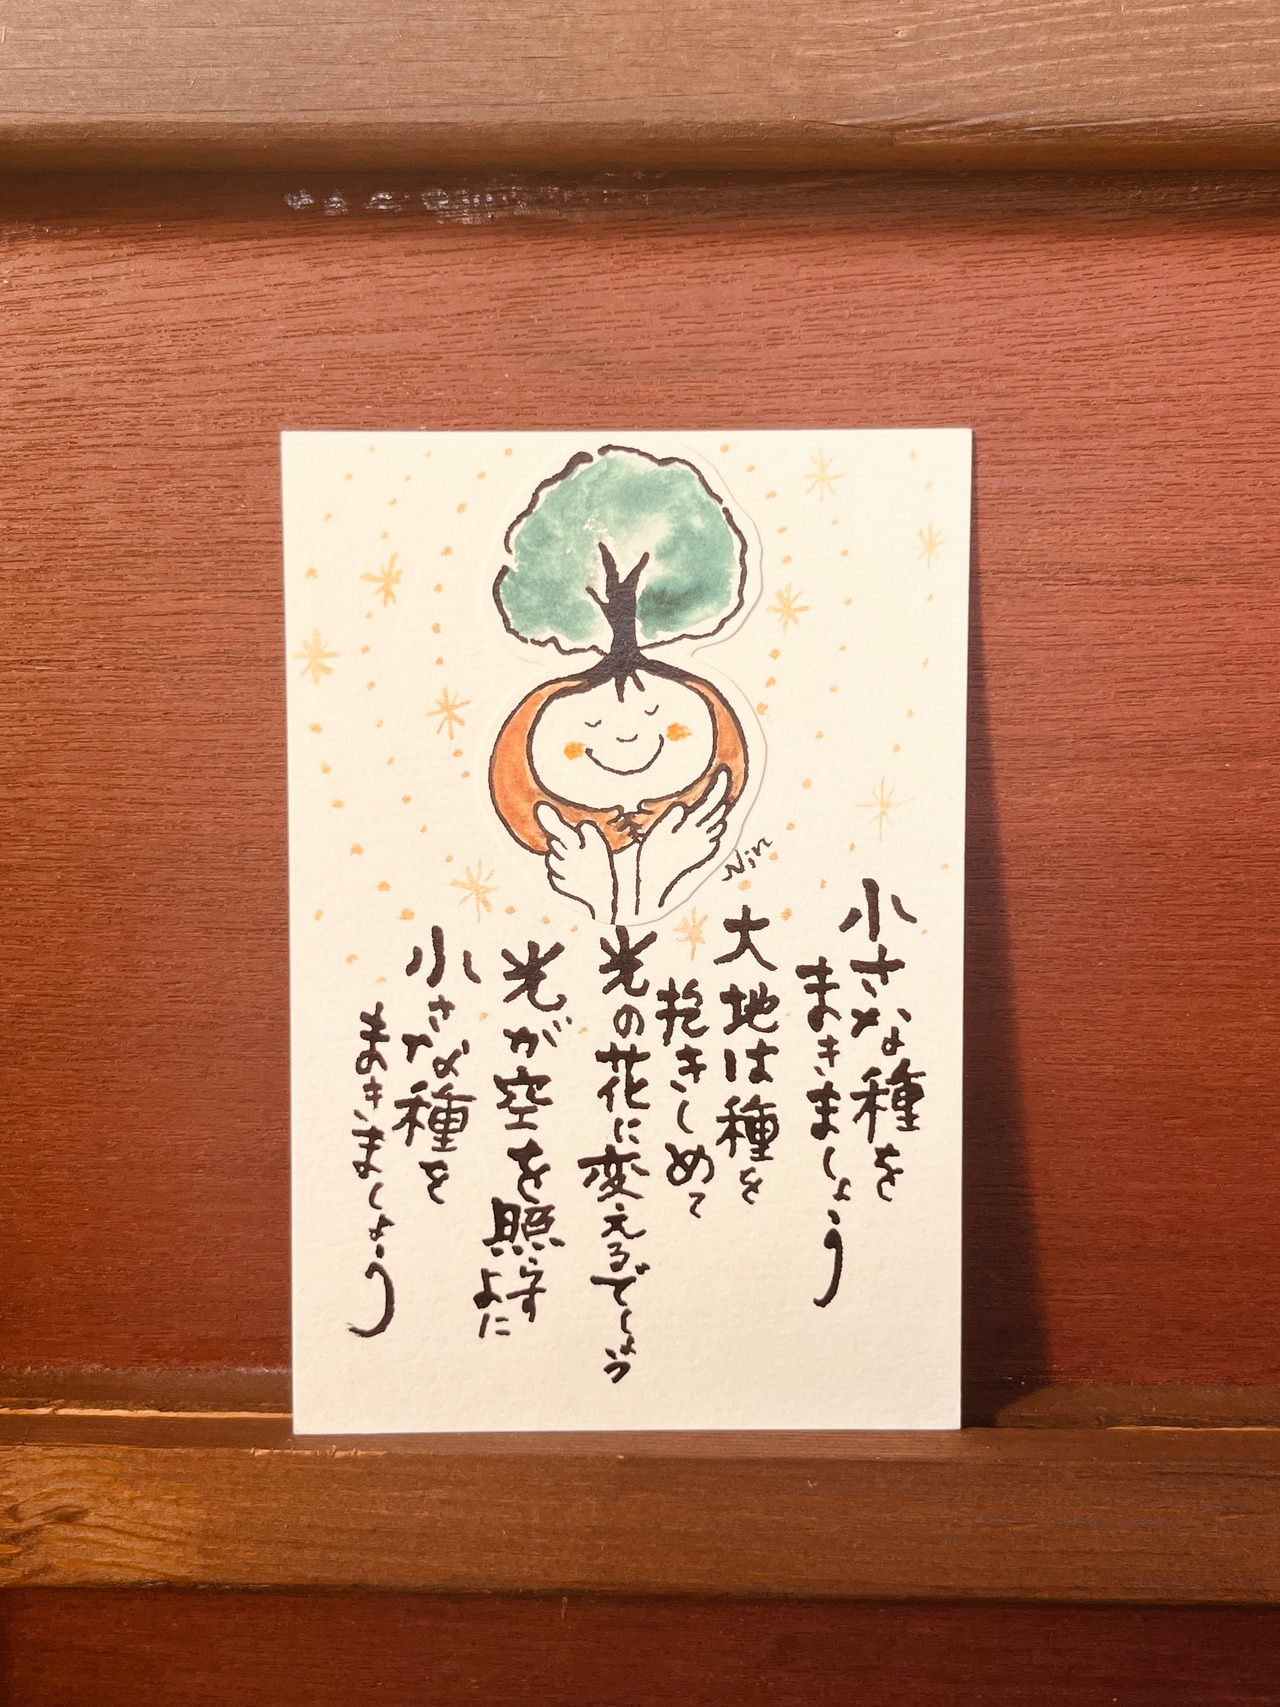 小さな種を
まきましょう
大地は種を
抱きしめて
光の花に変えるでしょう
光が空を照らす
よに
小さな種を
まきましょう
Nin